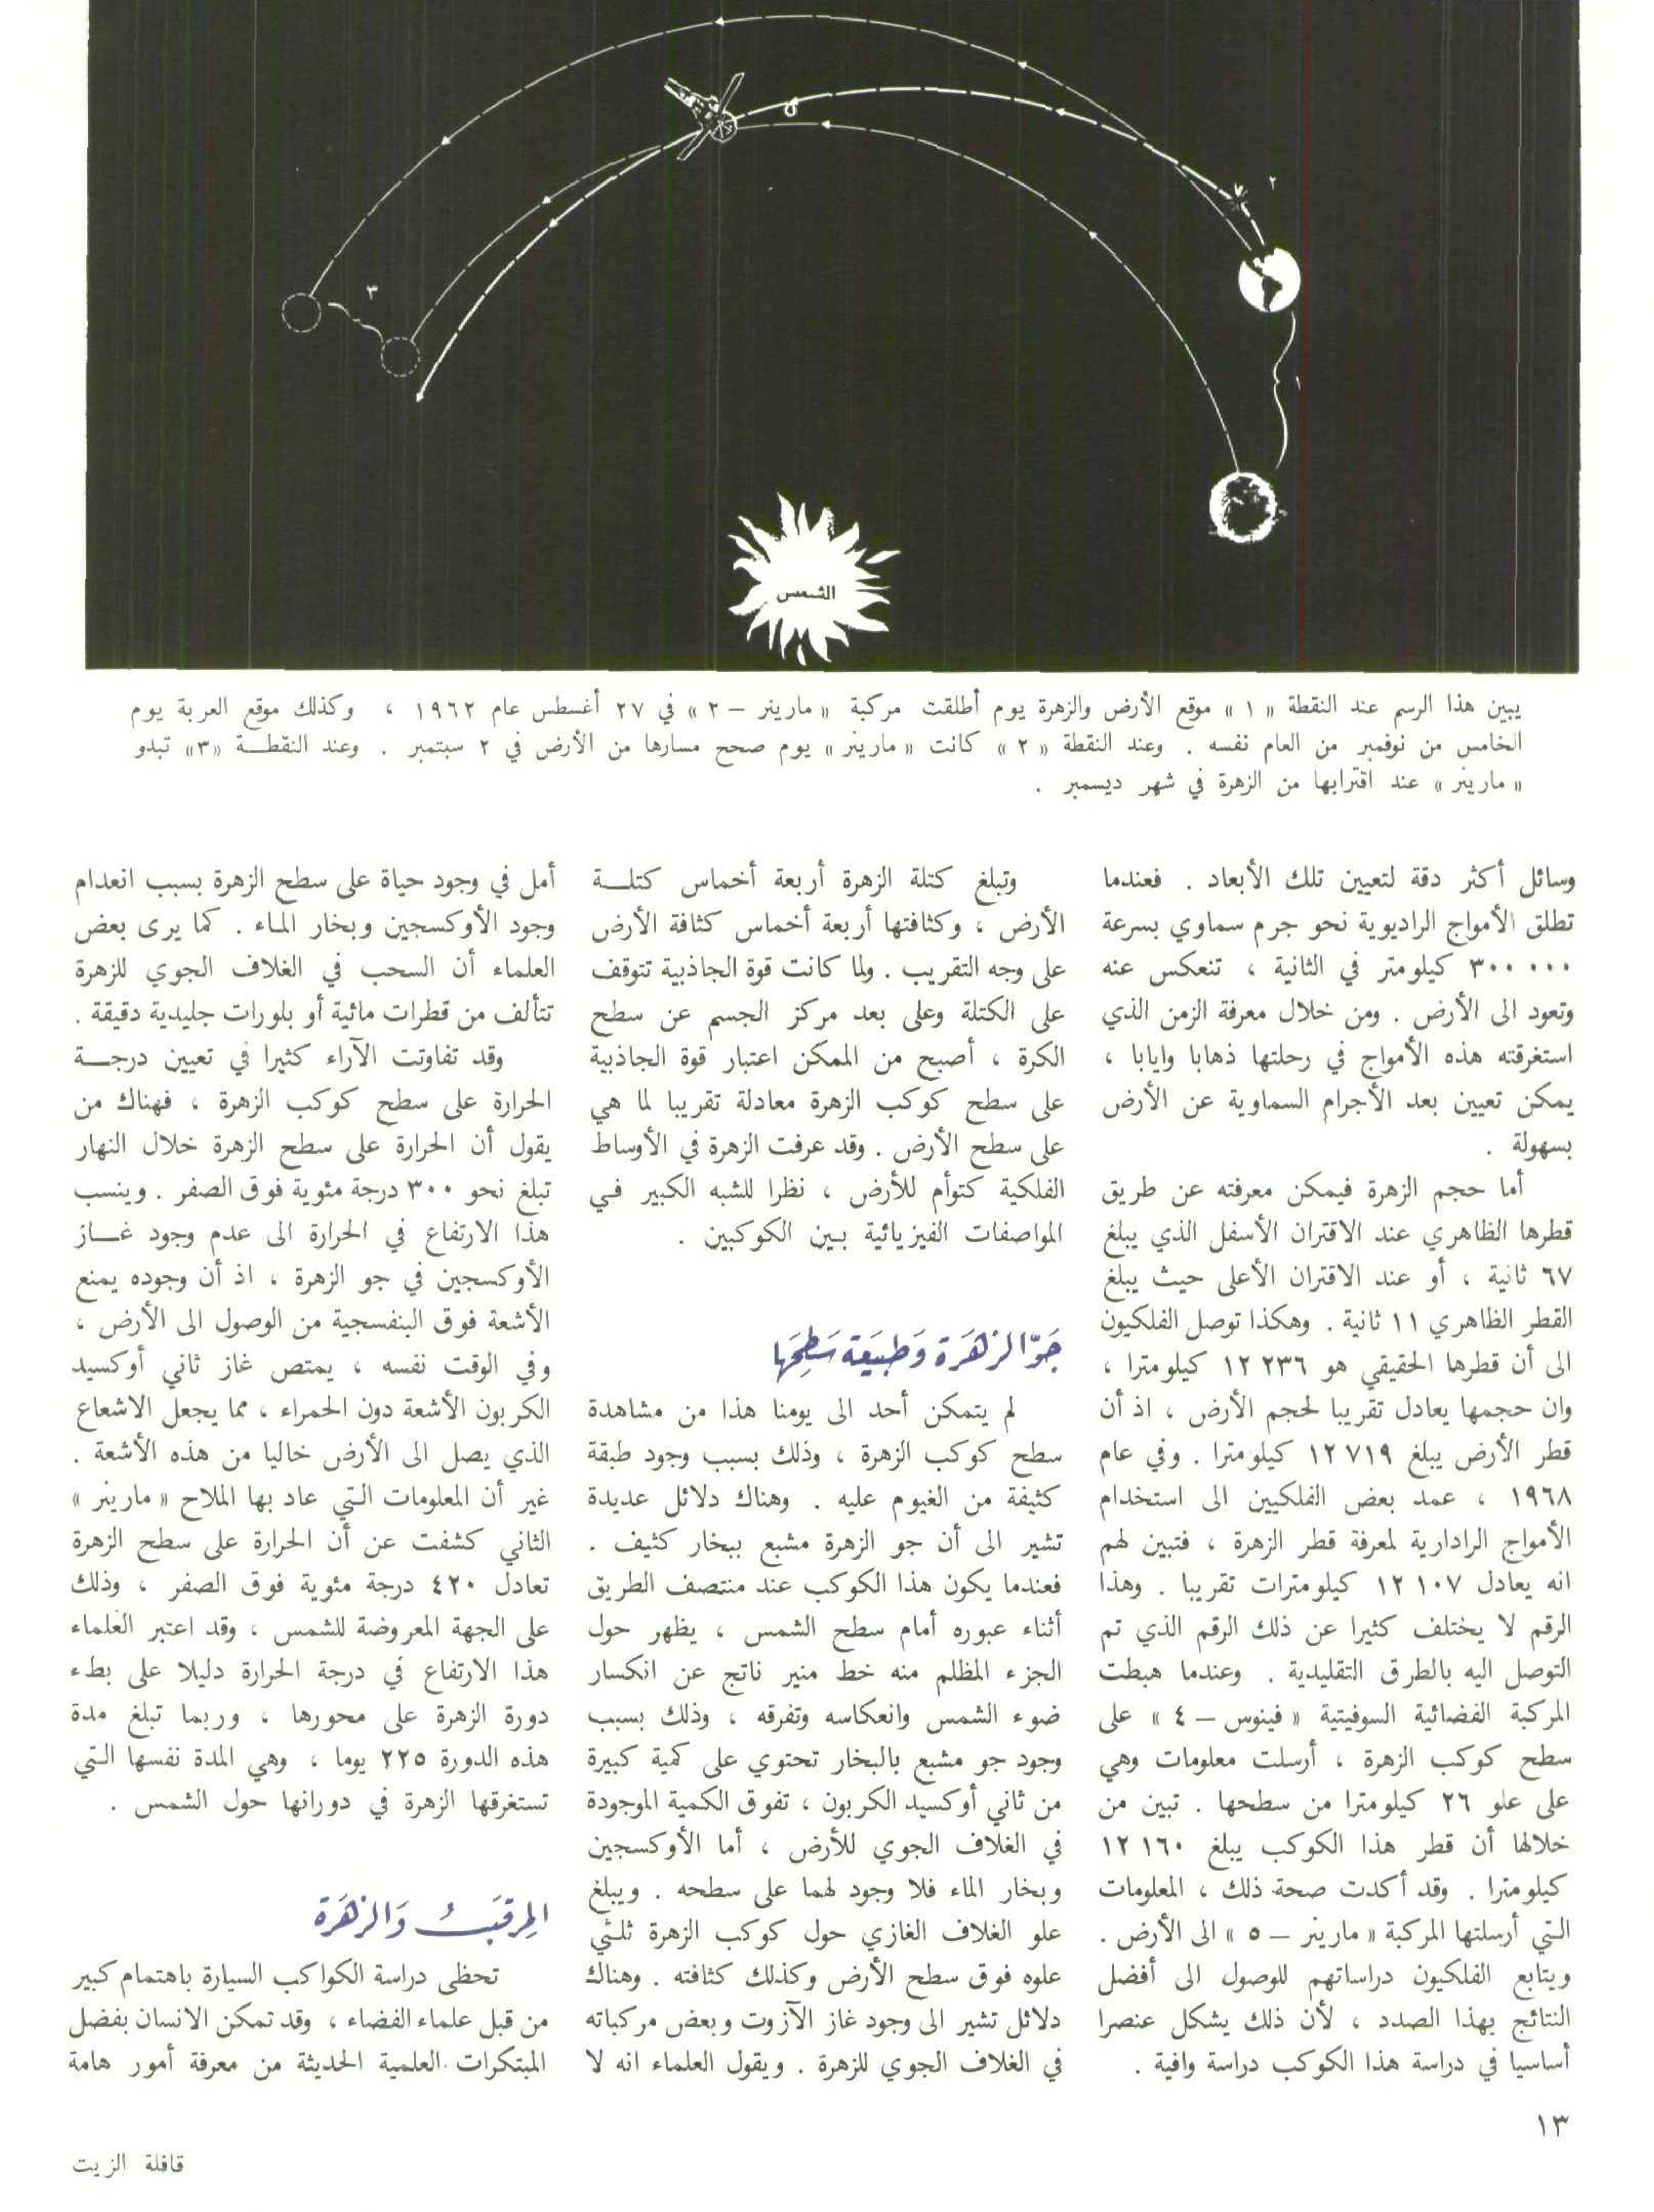 ٢
٣
١
الشمس
يبين هذا الرسم عند النقطة « ١ » موقع الأرض والزهرة يوم أطلقت مركبة « مارينر – ٢ » في ٢٧ أغسطس عام ١٩٦٢ ، وكذلك موقع العربة يوم
الخامس من نوفمبر من العام نفسه . وعند النقطة « ٢ » كانت « مارينر » يوم صحح مسارها من الأرض في ٢ سبتمبر . وعند النقطـــة «٣» تبدو
« مارينر » عند اقترابها من الزهرة في شهر ديسمبر .
وسائل أكثر دقة لتعيين تلك الأبعاد . فعندما
تطلق الأمواج الراديوية نحو جرم سماوي بسرعة
٣٠٠ ٠٠٠ كيلومتر في الثانية ، تنعكس عنه
وتعود الى الأرض . ومن خلال معرفة الزمن الذي
استغرقته هذه الأمواج في رحلتها ذهابا وايابا ،
يمكن تعيين بعد الأجرام السماوية عن الأرض
بسهولة .
أما حجم الزهرة فيمكن معرفته عن طريق
قطرها الظاهري عند الاقتران الأسفل الذي يبلغ
٦٧ ثانية ، أو عند الاقتران الأعلى حيث يبلغ
القطر الظاهري ١١ ثانية . وهكذا توصل الفلكيون
الى أن قطرها الحقيقي هو ٢٣٦ ١٢ كيلومترا ،
وان حجمها يعادل تقريبا لحجم الأرض ، اذ أن
قطر الأرض يبلغ ٧١٩ ١٢ كيلومترا . وفي عام
١٩٦٨ ، عمد بعض الفلكيين الى استخدام
الأمواج الرادارية لمعرفة قطر الزهرة ، فتبين لهم
انه يعادل ١٠٧ ١٢ كيلومترات تقريبا . وهذا
الرقم لا يختلف كثيرا عن ذلك الرقم الذي تم
التوصل اليه بالطرق التقليدية . وعندما هبطت
المركبة الفضائية السوفيتية « فينوس – ٤ » على
سطح كوكب الزهرة ، أرسلت معلومات وهي
على علو ٢٦ كيلومترا من سطحها . تبين من
خلالها أن قطر هذا الكوكب يبلغ ١٦٠ ١٢
كيلومترا . وقد أكدت صحة ذلك ، المعلومات
التي أرسلتها المركبة « مارينر – ٥ » الى الأرض .
ويتابع الفلكيون دراساتهم للوصول الى أفضل
النتائج بهذا الصدد ، لأن ذلك يشكل عنصرا
أساسيا في دراسة هذا الكوكب دراسة وافية .
وتبلغ كتلة الزهرة أربعة أخماس كتلـــة
الأرض ، وكثافتها أربعة أخماس كثافة الأرض
على وجه التقريب . ولما كانت قوة الجاذبية تتوقف
على الكتلة وعلى بعد مركز الجسم عن سطح
الكرة ، أصبح من الممكن اعتبار قوة الجاذبية
على سطح كوكب الزهرة معادلة تقريبا لما هي
على سطح الأرض . وقد عرفت الزهرة في الأوساط
الفلكية كتوأم للأرض ، نظرا للشبه الكبير في
المواصفات الفيزيائية بين الكوكبين .
جَوّ الزهَرة وَطبيَعة سَطِحَها
لم يتمكن أحد الى يومنا هذا من مشاهدة
سطح كوكب الزهرة ، وذلك بسبب وجود طبقة
كثيفة من الغيوم عليه . وهناك دلائل عديدة
تشير الى أن جو الزهرة مشبع ببخار كثيف .
فعندما يكون هذا الكوكب عند منتصف الطريق
أثناء عبوره أمام سطح الشمس ، يظهر حول
الجزء المظلم منه خط منير ناتج عن انكسار
ضوء الشمس وانعكاسه وتفرقه ، وذلك بسبب
وجود جو مشبع بالبخار تحتوي على كمية كبيرة
من ثاني أوكسيد الكربون ، تفوق الكمية الموجودة
في الغلاف الجوي للأرض ، أما الأوكسجين
وبخار الماء فلا وجود لهما على سطحه . ويبلغ
علو الغلاف الغازي حول كوكب الزهرة ثلثي
علوه فوق سطح الأرض وكذلك كثافته . وهناك
دلائل تشير الى وجود غاز الآزوت وبعض مركباته
في الغلاف الجوي للزهرة . ويقول العلماء انه لا
أمل في وجود حياة على سطح الزهرة بسبب انعدام
وجود الأوكسجين وبخار الماء . كما يرى بعض
العلماء أن السحب في الغلاف الجوي للزهرة
تتألف من قطرات مائية أو بلورات جليدية دقيقة .
وقد تفاوتت الآراء كثيرا في تعيين درجـــة
الحرارة على سطح كوكب الزهرة ، فهناك من
يقول أن الحرارة على سطح الزهرة خلال النهار
تبلغ نحو ٣٠٠ درجة مئوية فوق الصفر . وينسب
هذا الارتفاع في الحرارة الى عدم وجود غـــاز
الأوكسجين في جو الزهرة ، اذ أن وجوده يمنع
الأشعة فوق البنفسجية من الوصول الى الأرض ،
وفي الوقت نفسه ، يمتص غاز ثاني أوكسيد
الكربون الأشعة دون الحمراء ، مما يجعل الاشعاع
الذي يصل الى الأرض خاليا من هذه الأشعة .
غير أن المعلومات التي عاد بها الملاح « مارينر »
الثاني كشفت عن أن الحرارة على سطح الزهرة
تعادل ٤٢٠ درجة مئوية فوق الصفر ، وذلك
على الجهة المعروضة للشمس ، وقد اعتبر العلماء
هذا الارتفاع في درجة الحرارة دليلا على بطء
دورة الزهرة على محورها ، وربما تبلغ مدة
هذه الدورة ٢٢٥ يوما ، وهي المدة نفسها التي
تستغرقها الزهرة في دورانها حول الشمس .
المِرقَبُ وَالزهَرة
تحظى دراسة الكواكب السيارة باهتمام كبير
من قبل علماء الفضاء ، وقد تمكن الانسان بفضل
المبتكرات العلمية الحديثة من معرفة أمور هامة
١٣
قافلة الزيت